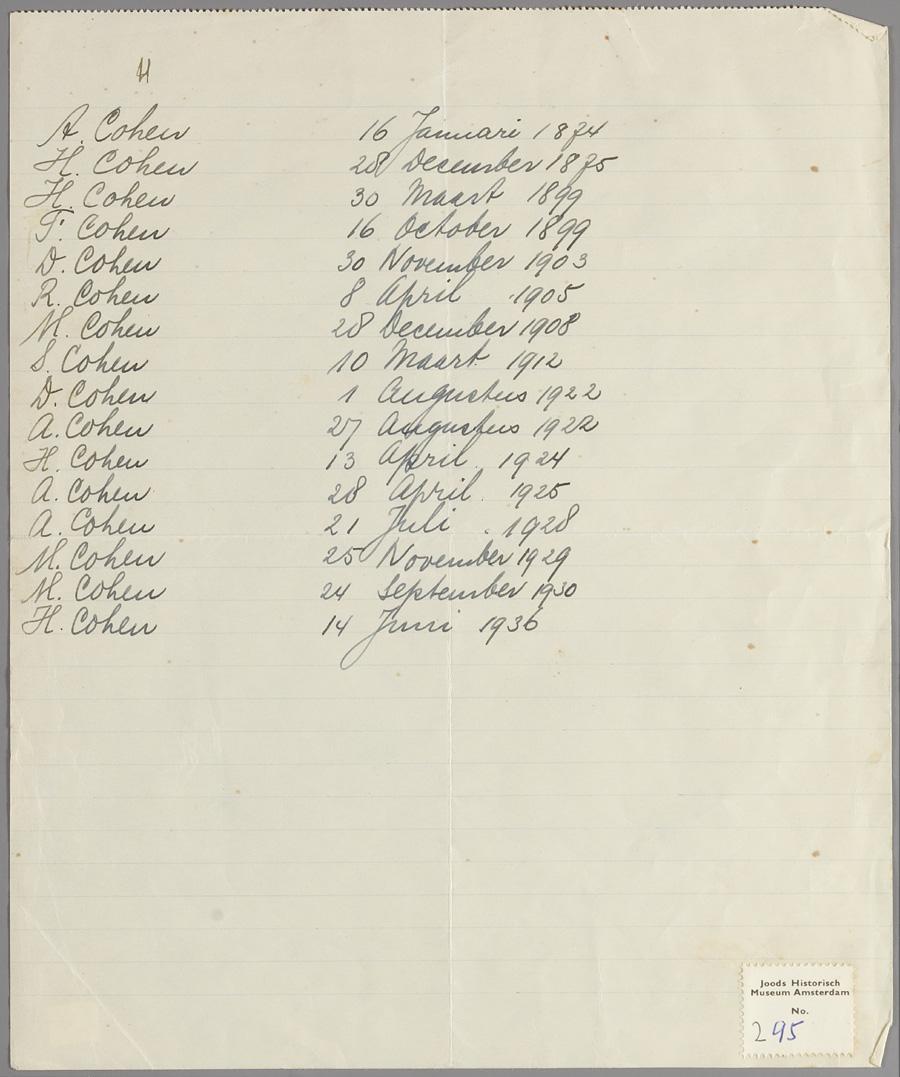 H
A. Cohen 16 Januari 1874
H. Cohen 28 December 1875
H. Cohen 30 Maart 1899
F. Cohen 16 October 1899
D. Cohen 30 November 1903
R. Cohen 8 April 1905
M. Cohen 28 December 1908
S. Cohen 10 Maart 1912
D. Cohen 1 Augustus 1922
A. Cohen 27 Augustus 1922
H. Cohen 13 April 1924
A. Cohen 28 April 1925
A. Cohen 21 Juli 1928
M. Cohen 25 November 1929
M. Cohen 24 September 1930
H. Cohen 14 Juni 1936
Joods Historisch
Museum Amsterdam
No.
295